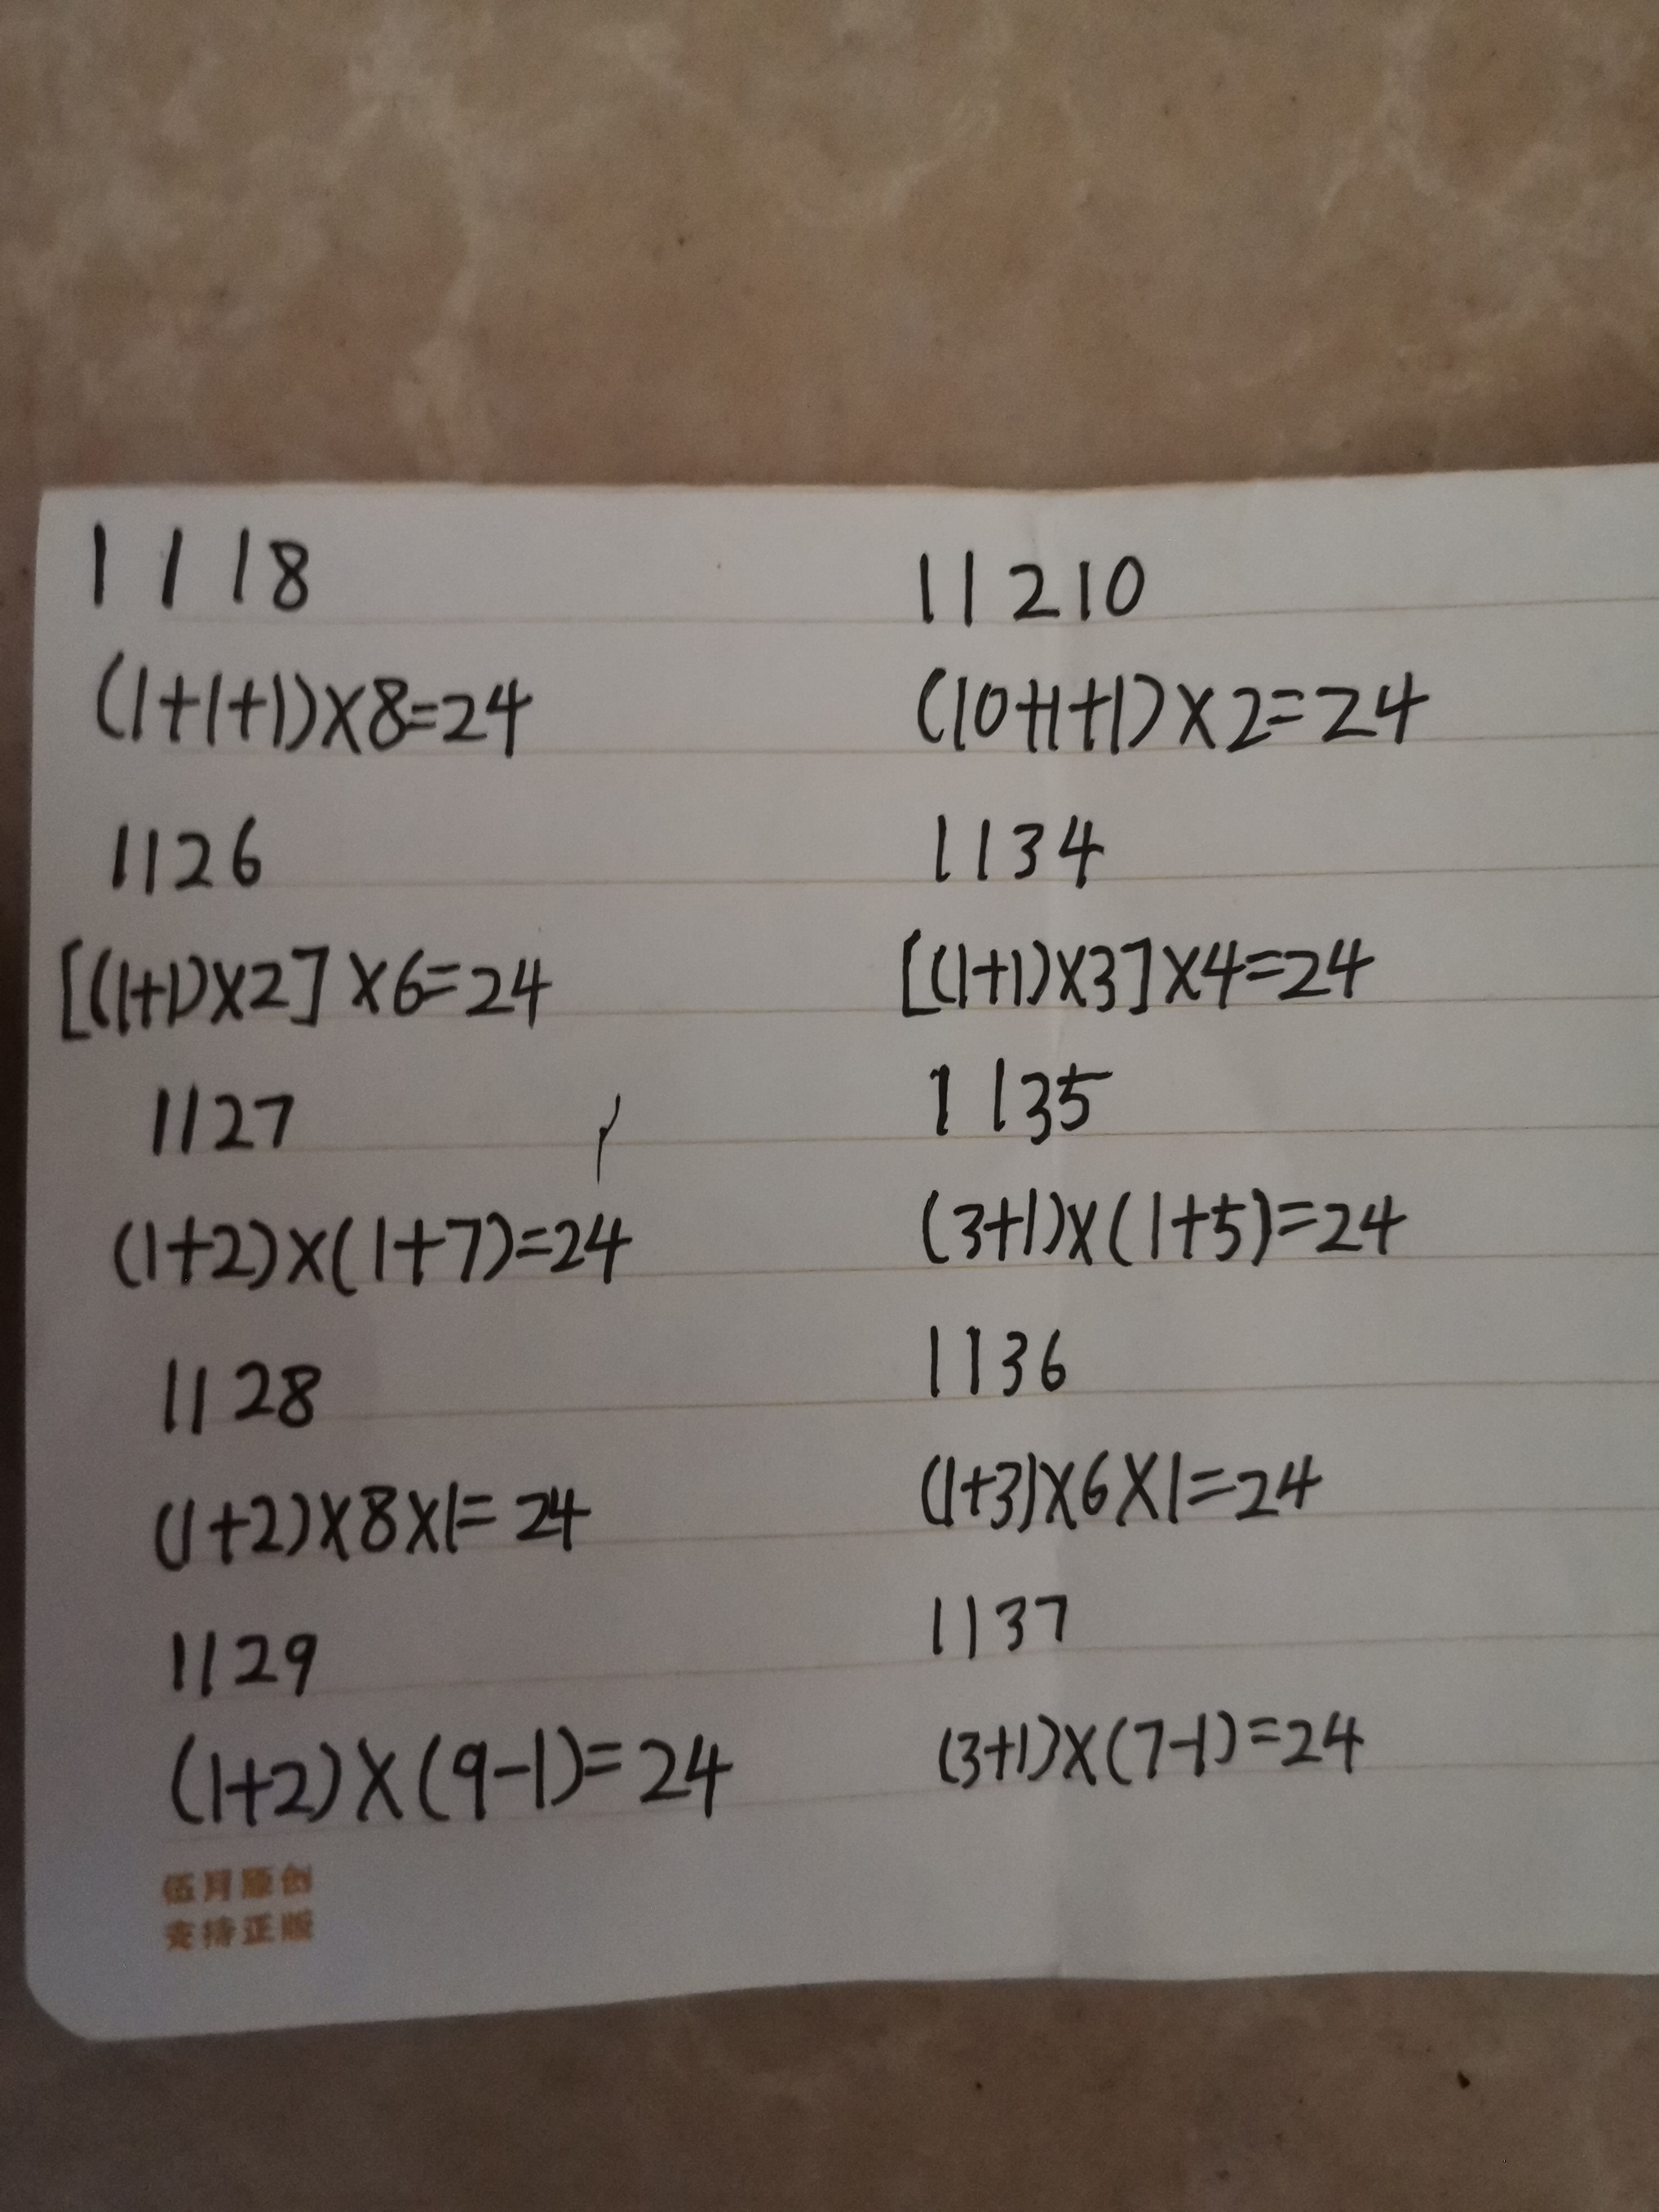 1 1 1 8
(1+1+1)×8=24
1126
[(1+1)×2]×6=24
1127
(1+2)×(1+7)=24
1128
(1+2)×8×1=24
1129
(1+2)×(9-1)=24
伍月原创
支持正版
11210
(10+1+1)×2=24
1134
[(1+1)×3]×4=24
1 135
(3+1)×(1+5)=24
1136
(1+3)×6×1=24
1137
(3+1)×(7-1)=24